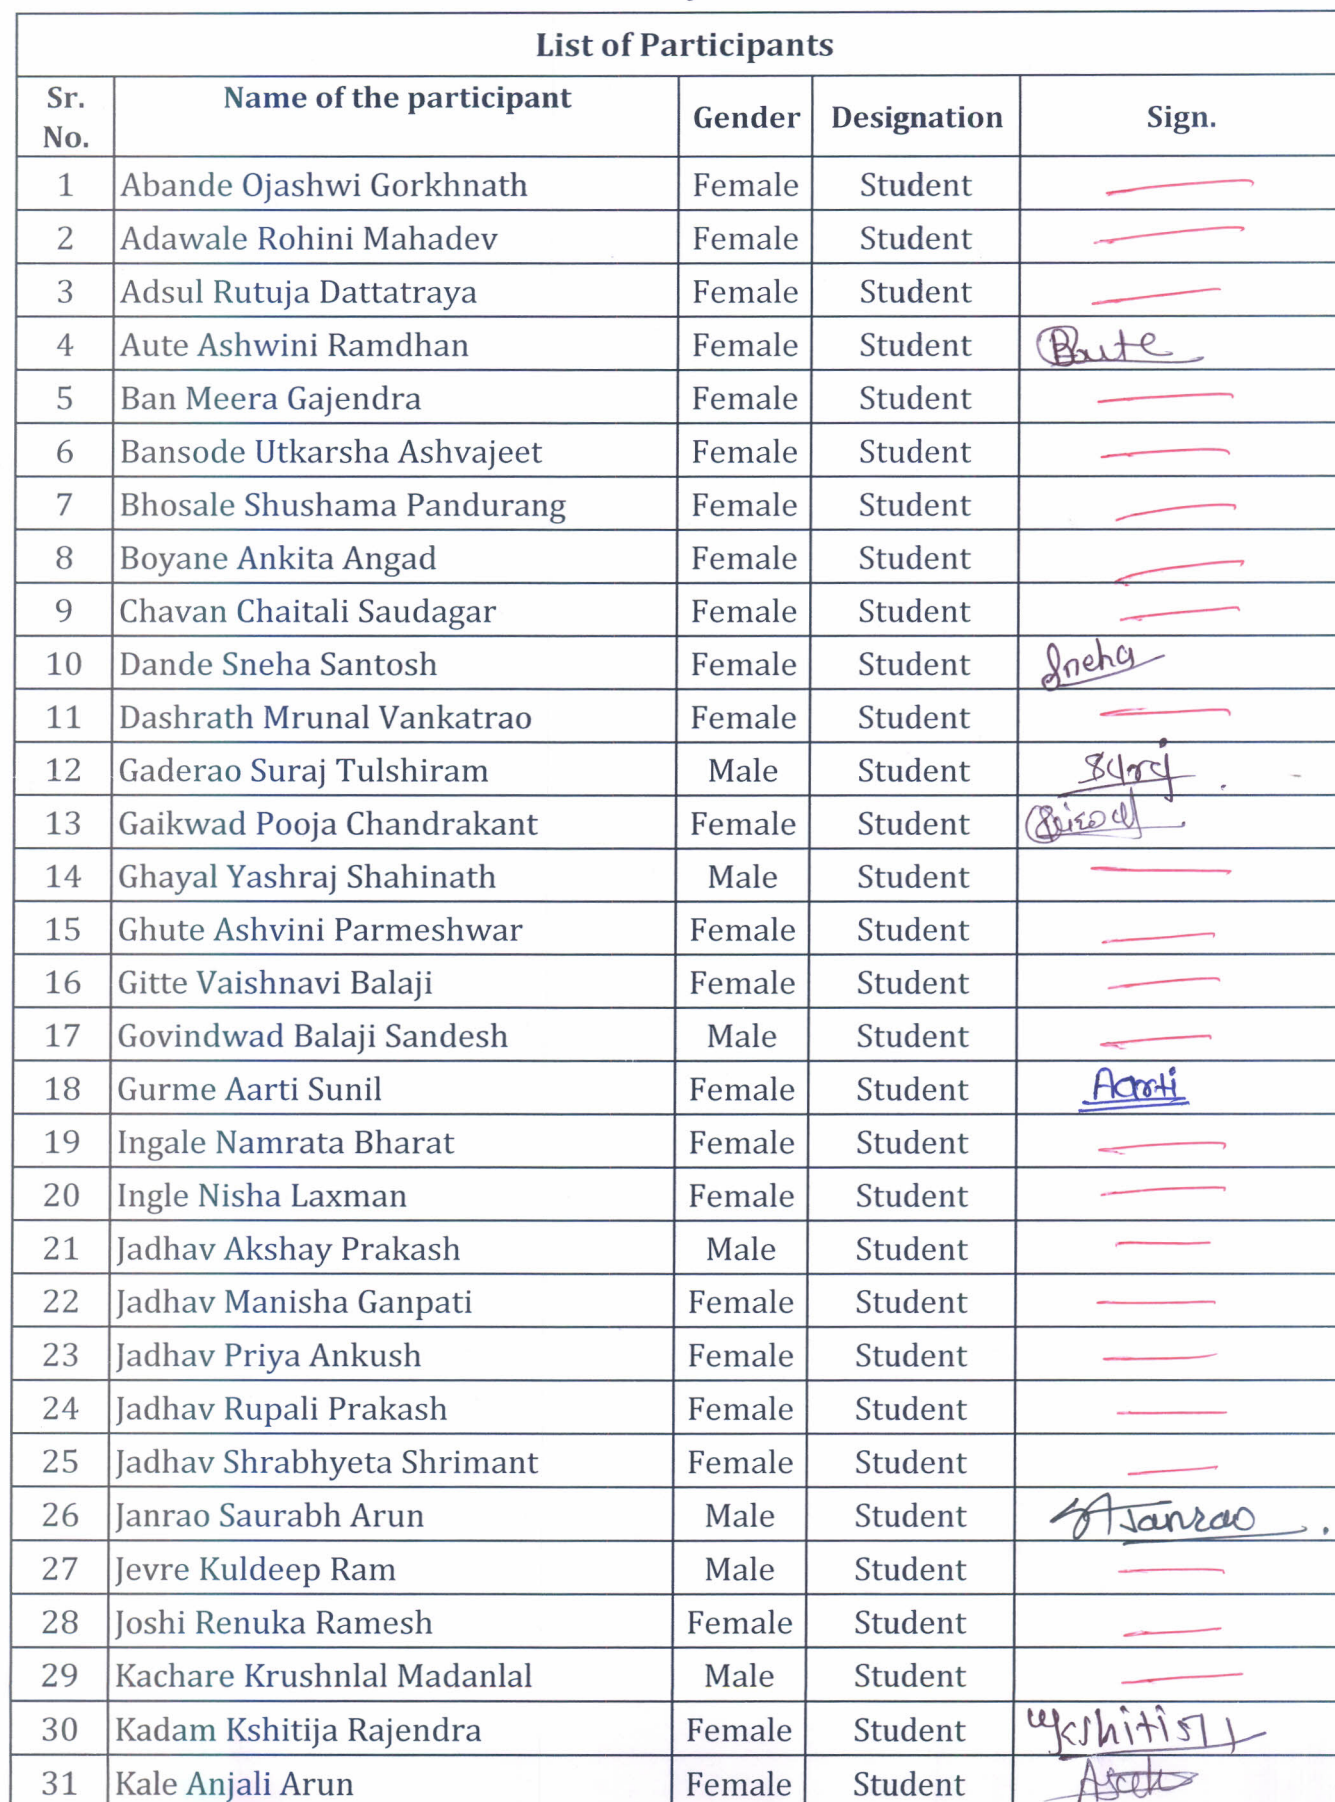 List of Participants
Sr. No. Name of the participant Gender Designation Sign.
1 Abande Ojashwi Gorkhnath Female Student
2 Adawale Rohini Mahadev Female Student
3 Adsul Rutuja Dattatraya Female Student
4 Aute Ashwini Ramdhan Female Student
5 Ban Meera Gajendra Female Student
6 Bansode Utkarsha Ashvajeet Female Student
7 Bhosale Shushama Pandurang Female Student
8 Boyane Ankita Angad Female Student
9 Chavan Chaitali Saudagar Female Student
10 Dande Sneha Santosh Female Student Sneha
11 Dashrath Mrunal Vankatrao Female Student
12 Gaderao Suraj Tulshiram Male Student Suraj
13 Gaikwad Pooja Chandrakant Female Student
14 Ghayal Yashraj Shahinath Male Student
15 Ghute Ashvini Parmeshwar Female Student
16 Gitte Vaishnavi Balaji Female Student
17 Govindwad Balaji Sandesh Male Student
18 Gurme Aarti Sunil Female Student Aarti
19 Ingale Namrata Bharat Female Student
20 Ingle Nisha Laxman Female Student
21 Jadhav Akshay Prakash Male Student
22 Jadhav Manisha Ganpati Female Student
23 Jadhav Priya Ankush Female Student
24 Jadhav Rupali Prakash Female Student
25 Jadhav Shrabhyeta Shrimant Female Student
26 Janrao Saurabh Arun Male Student SAJanrao
27 Jevre Kuldeep Ram Male Student
28 Joshi Renuka Ramesh Female Student
29 Kachare Krushnlal Madanlal Male Student
30 Kadam Kshitija Rajendra Female Student
31 Kale Anjali Arun Female Student